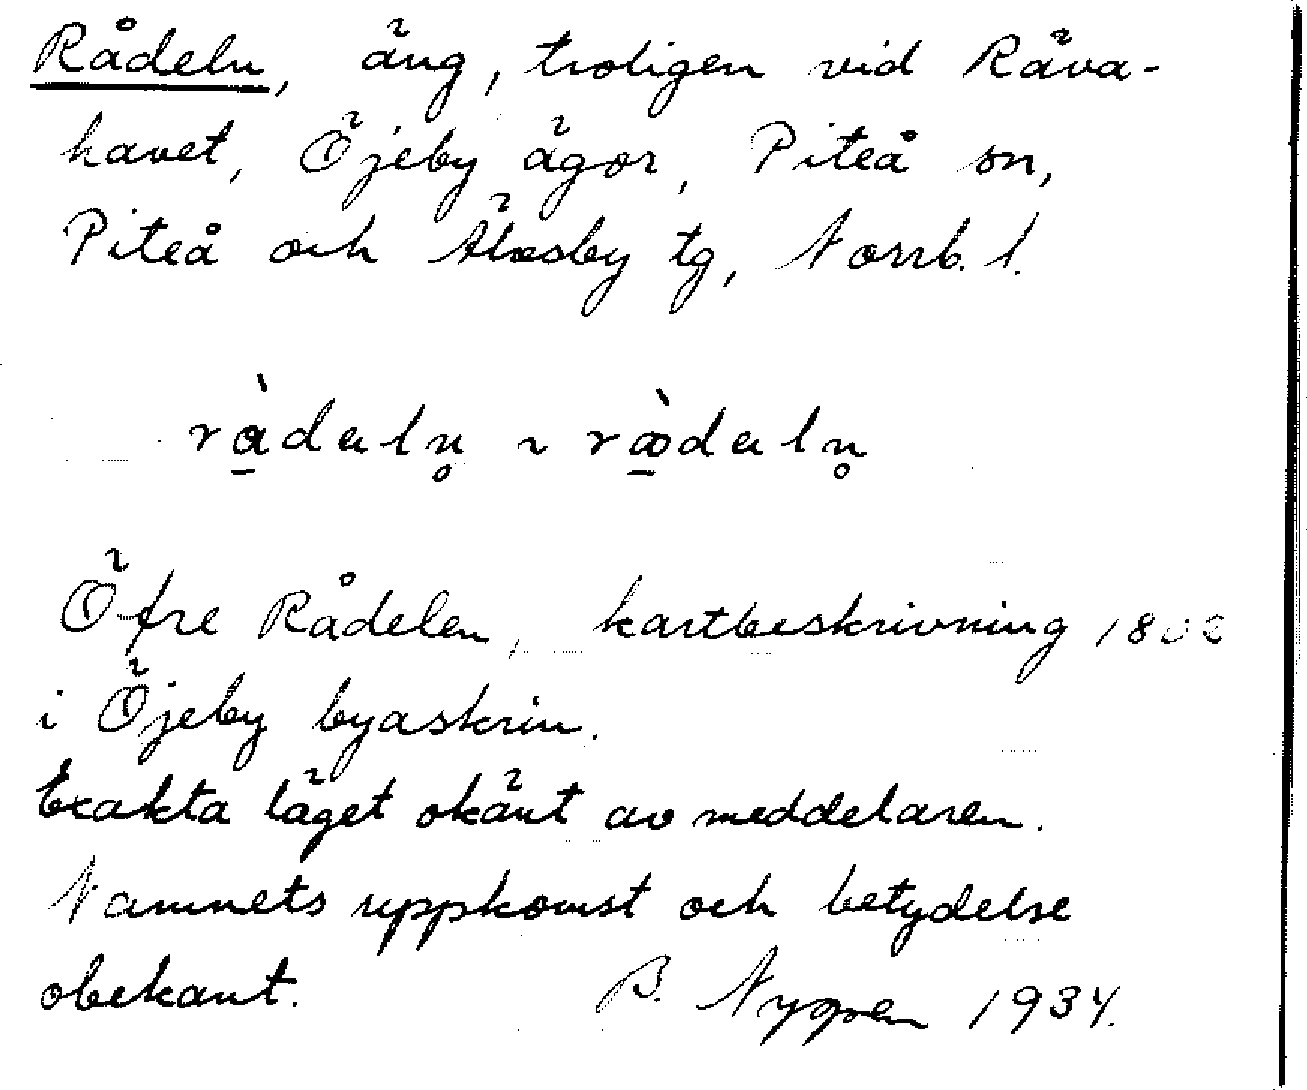 Rådeln, äng, troligen vid Räva-
havet, Öjeby ägor, Piteå sn,
Piteå och Älvsby tg, Norrb. l.
Öfre Rådelen, kartbeskrivning 1802
i Öjeby byaskrin.
Exakta läget okänt av meddelaren.
Namnets uppkomst och betydelse
obekant. B. Nygren 1934.